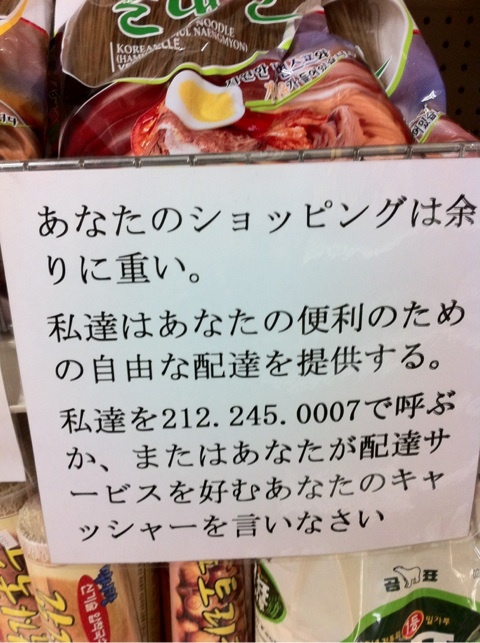 NOODLE
あなたのショッピングは余
りに重い。
私達はあなたの便利のため
の自由な配達を提供する。
私達を212.245.0007で呼ぶ
か、またはあなたが配達サ
ービスを好むあなたのキャ
ッシャーを言いなさい
곰 표
밀가루